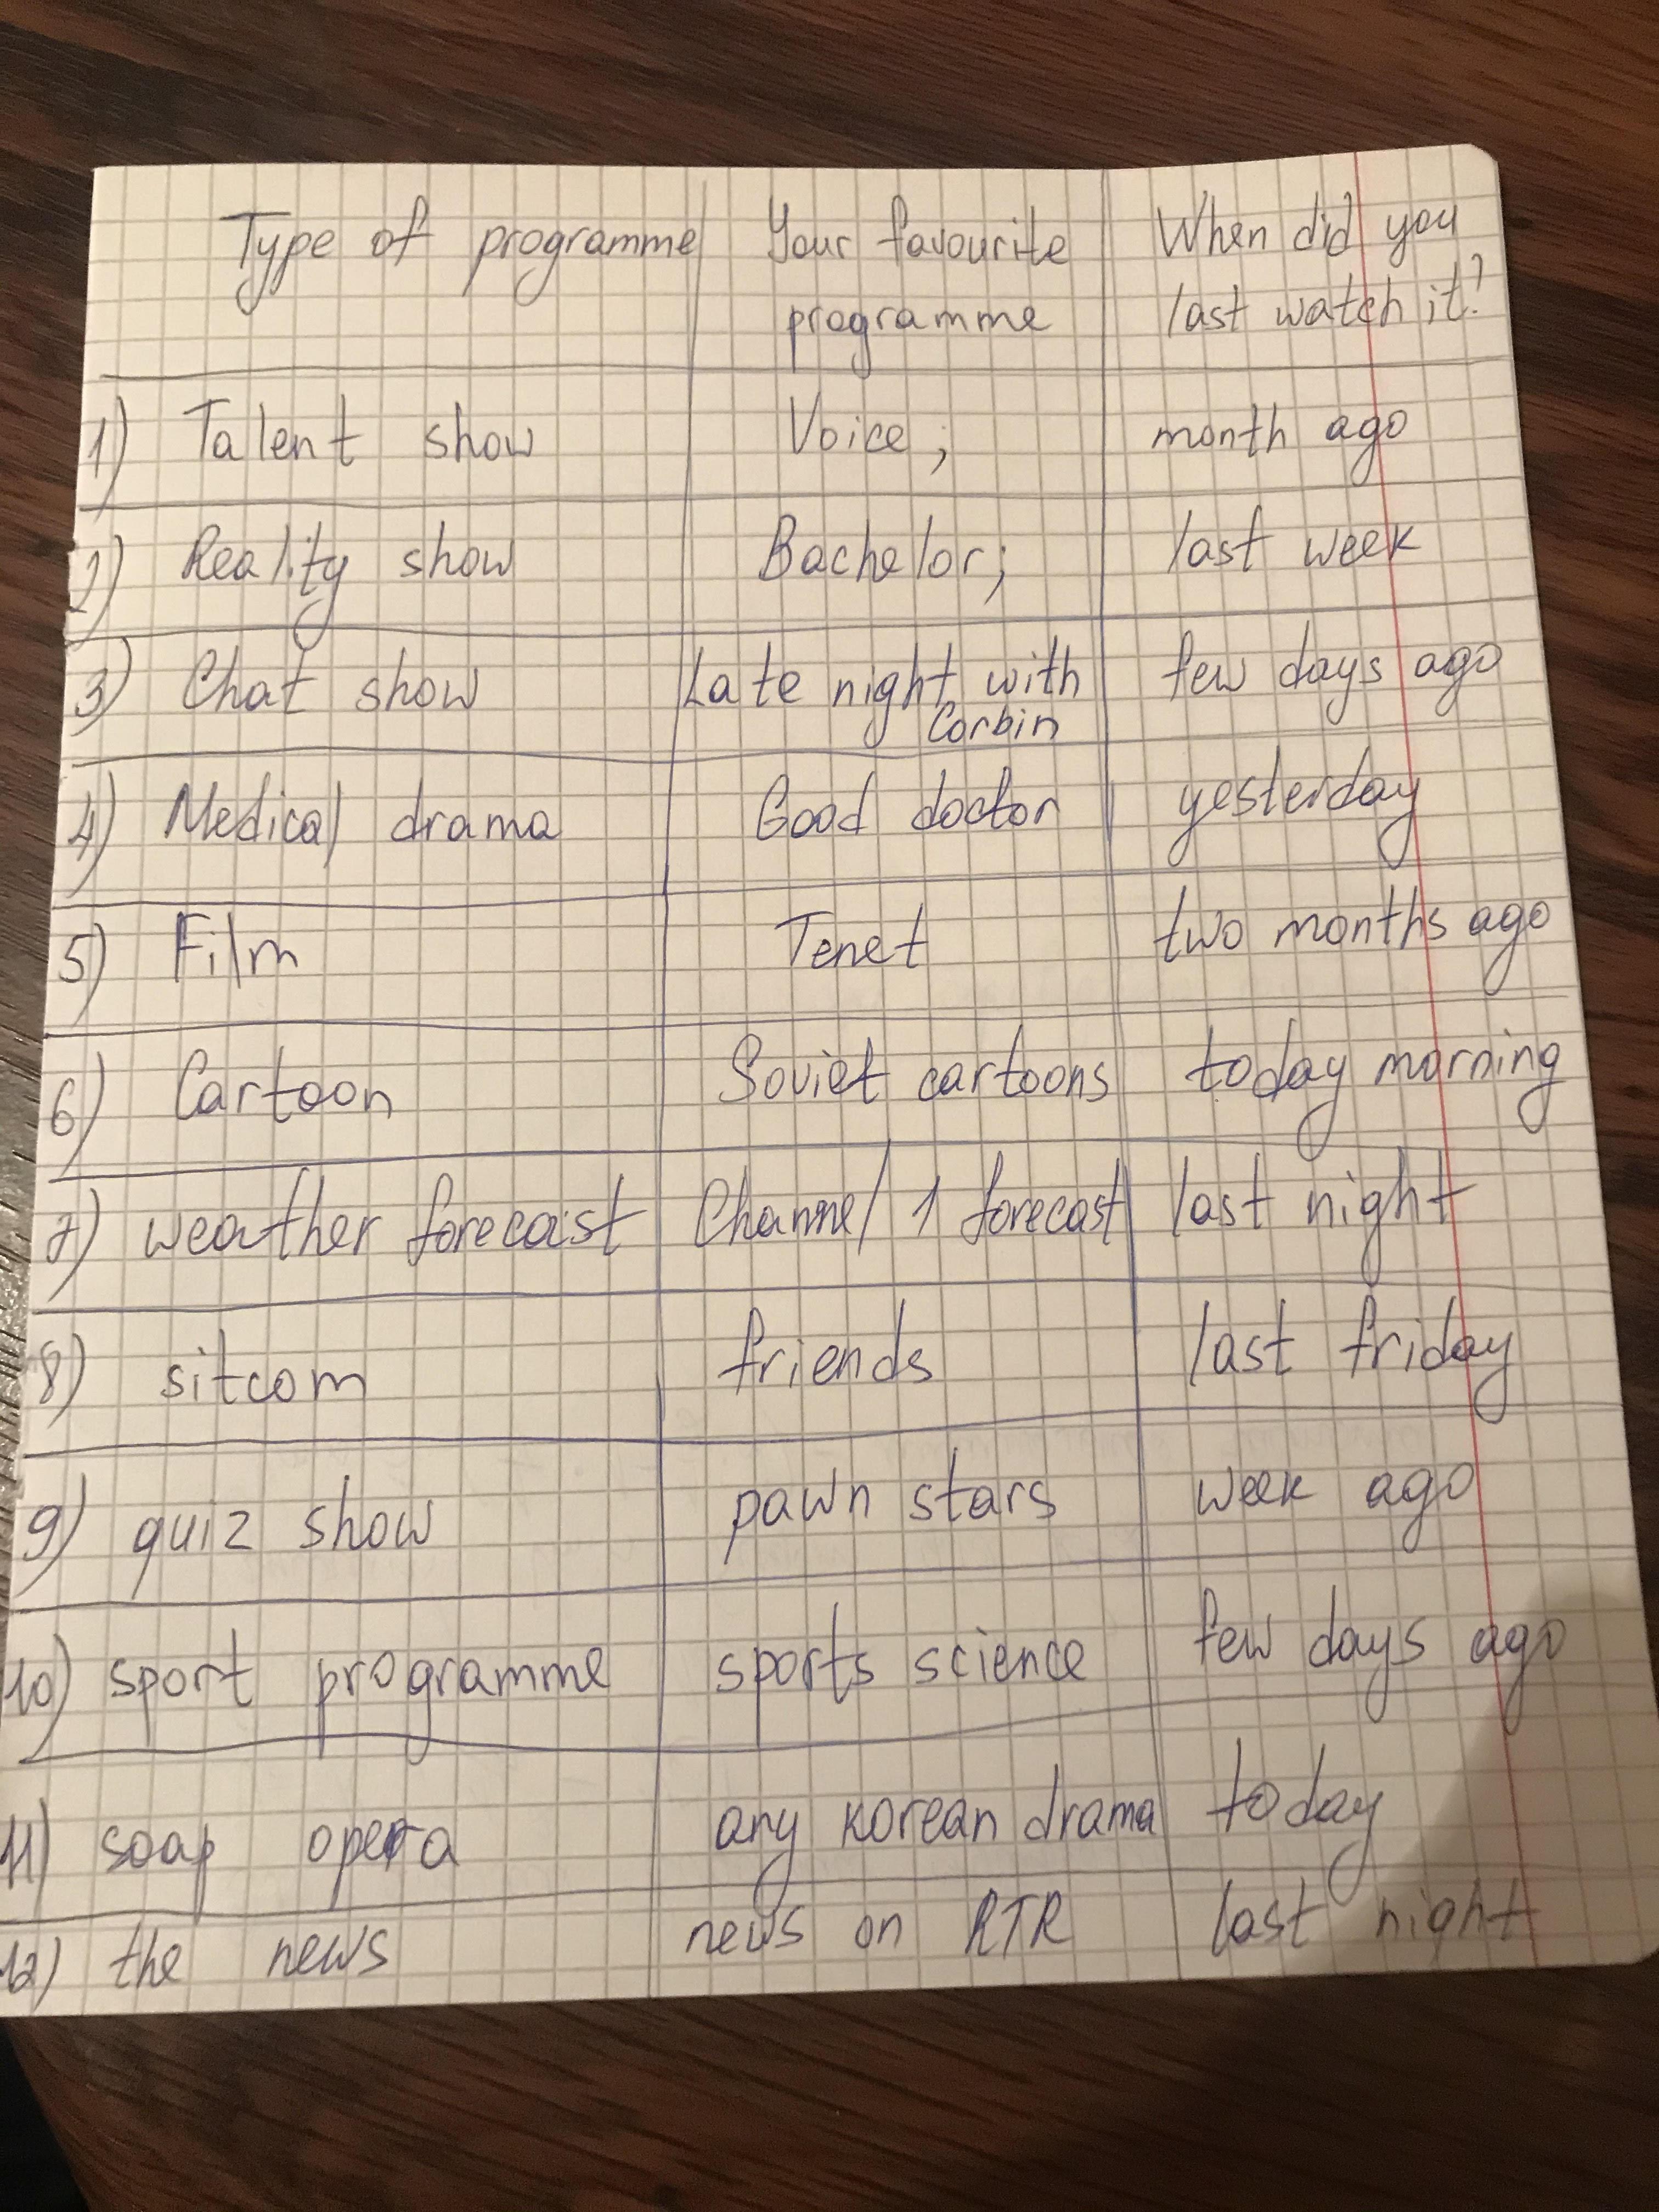 Type of programme Your favourite When did you
programme last watch it?
1) Talent show Voice; month ago
2) Reality show Bachelor; last week
3) Chat show Late night with few days ago
Corbin
4) Medical drama Good doctor yesterday
5) Film Tenet two months ago
6) Cartoon Soviet cartoons today morning
7) weather forecast Channel 1 forecast last night
8) sitcom friends last friday
9) quiz show pawn stars week ago
10) sport programme sports science few days ago
11) soap opera any korean drama today
12) the news news on RTR last night